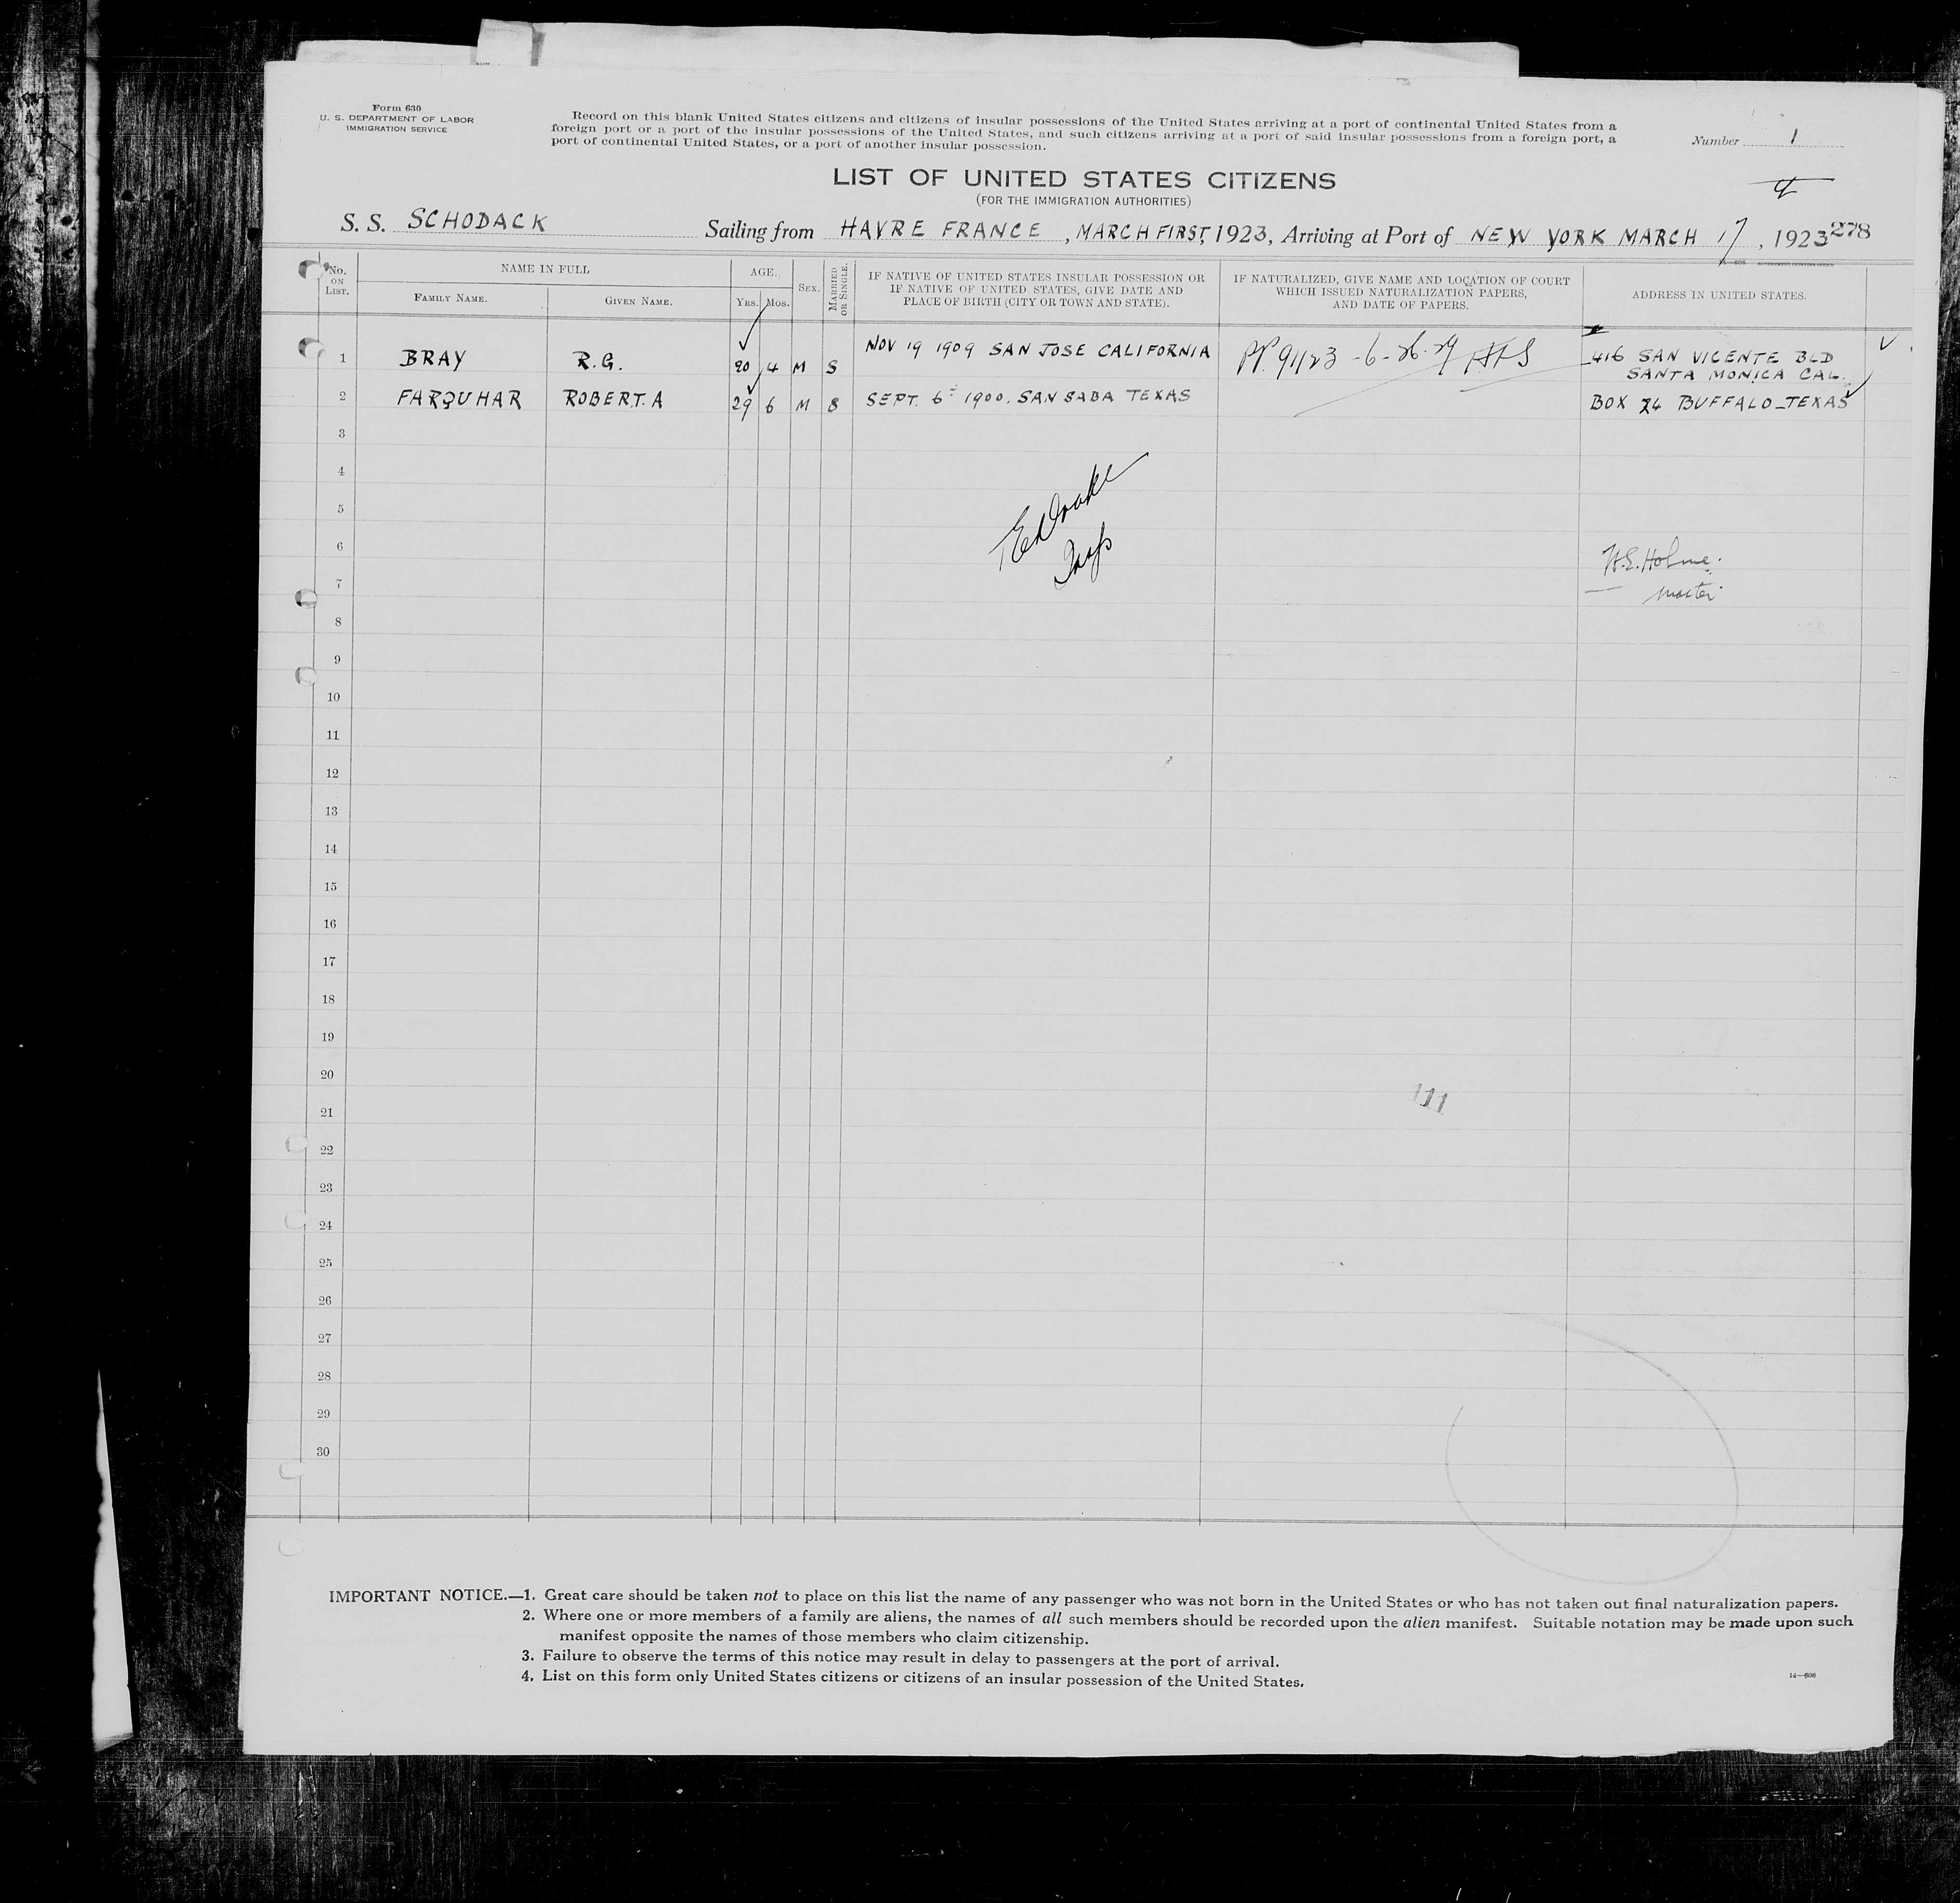 Form 630
U. S. DEPARTMENT OF LABOR
IMMIGRATION SERVICE
Record on this blank United States citizens and citizens of insular possessions of the United States arriving at a port of continental United States from a
foreign port or a port of the insular possessions of the United States, and such citizens arriving at a port of said insular possessions from a foreign port, a
port of continental United States, or a port of another insular possession.
Number 1
LIST OF UNITED STATES CITIZENS
(FOR THE IMMIGRATION AUTHORITIES)
S. S. SCHODACK Sailing from HAVRE FRANCE, MARCH FIRST, 1923, Arriving at Port of NEW YORK MARCH 17, 1923 278
No. ON LIST. NAME IN FULL AGE. SEX. MARRIED OR SINGLE. IF NATIVE OF UNITED STATES INSULAR POSSESSION OR IF NATIVE OF UNITED STATES, GIVE DATE AND PLACE OF BIRTH (CITY OR TOWN AND STATE). IF NATURALIZED, GIVE NAME AND LOCATION OF COURT WHICH ISSUED NATURALIZATION PAPERS, AND DATE OF PAPERS. ADDRESS IN UNITED STATES.
FAMILY NAME. GIVEN NAME. YRS. MOS.
1 BRAY R.G. 20 4 M S NOV 19 1909 SAN JOSE CALIFORNIA PP. 91123 - 6-26-29 416 SAN VICENTE BLD
SANTA MONICA CAL.
2 FARQUHAR ROBERT.A 29 6 M S SEPT. 6 1900. SAN SABA TEXAS BOX 24 BUFFALO_TEXAS
3
4
5
6
H.E. Holme.
7
Master
8
9
10
11
12
13
14
15
16
17
18
19
20
111
21
22
23
24
25
26
27
28
29
30
IMPORTANT NOTICE.—1. Great care should be taken not to place on this list the name of any passenger who was not born in the United States or who has not taken out final naturalization papers.
2. Where one or more members of a family are aliens, the names of all such members should be recorded upon the alien manifest. Suitable notation may be made upon such
manifest opposite the names of those members who claim citizenship.
3. Failure to observe the terms of this notice may result in delay to passengers at the port of arrival.
4. List on this form only United States citizens or citizens of an insular possession of the United States.
14—606